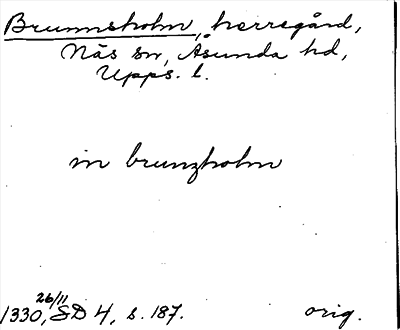 Brunnsholm, herregård,
Näs sn, Åsunda hd,
Upps. l.
in brunzholm
1330, 26/11, SD 4, s. 187. orig.